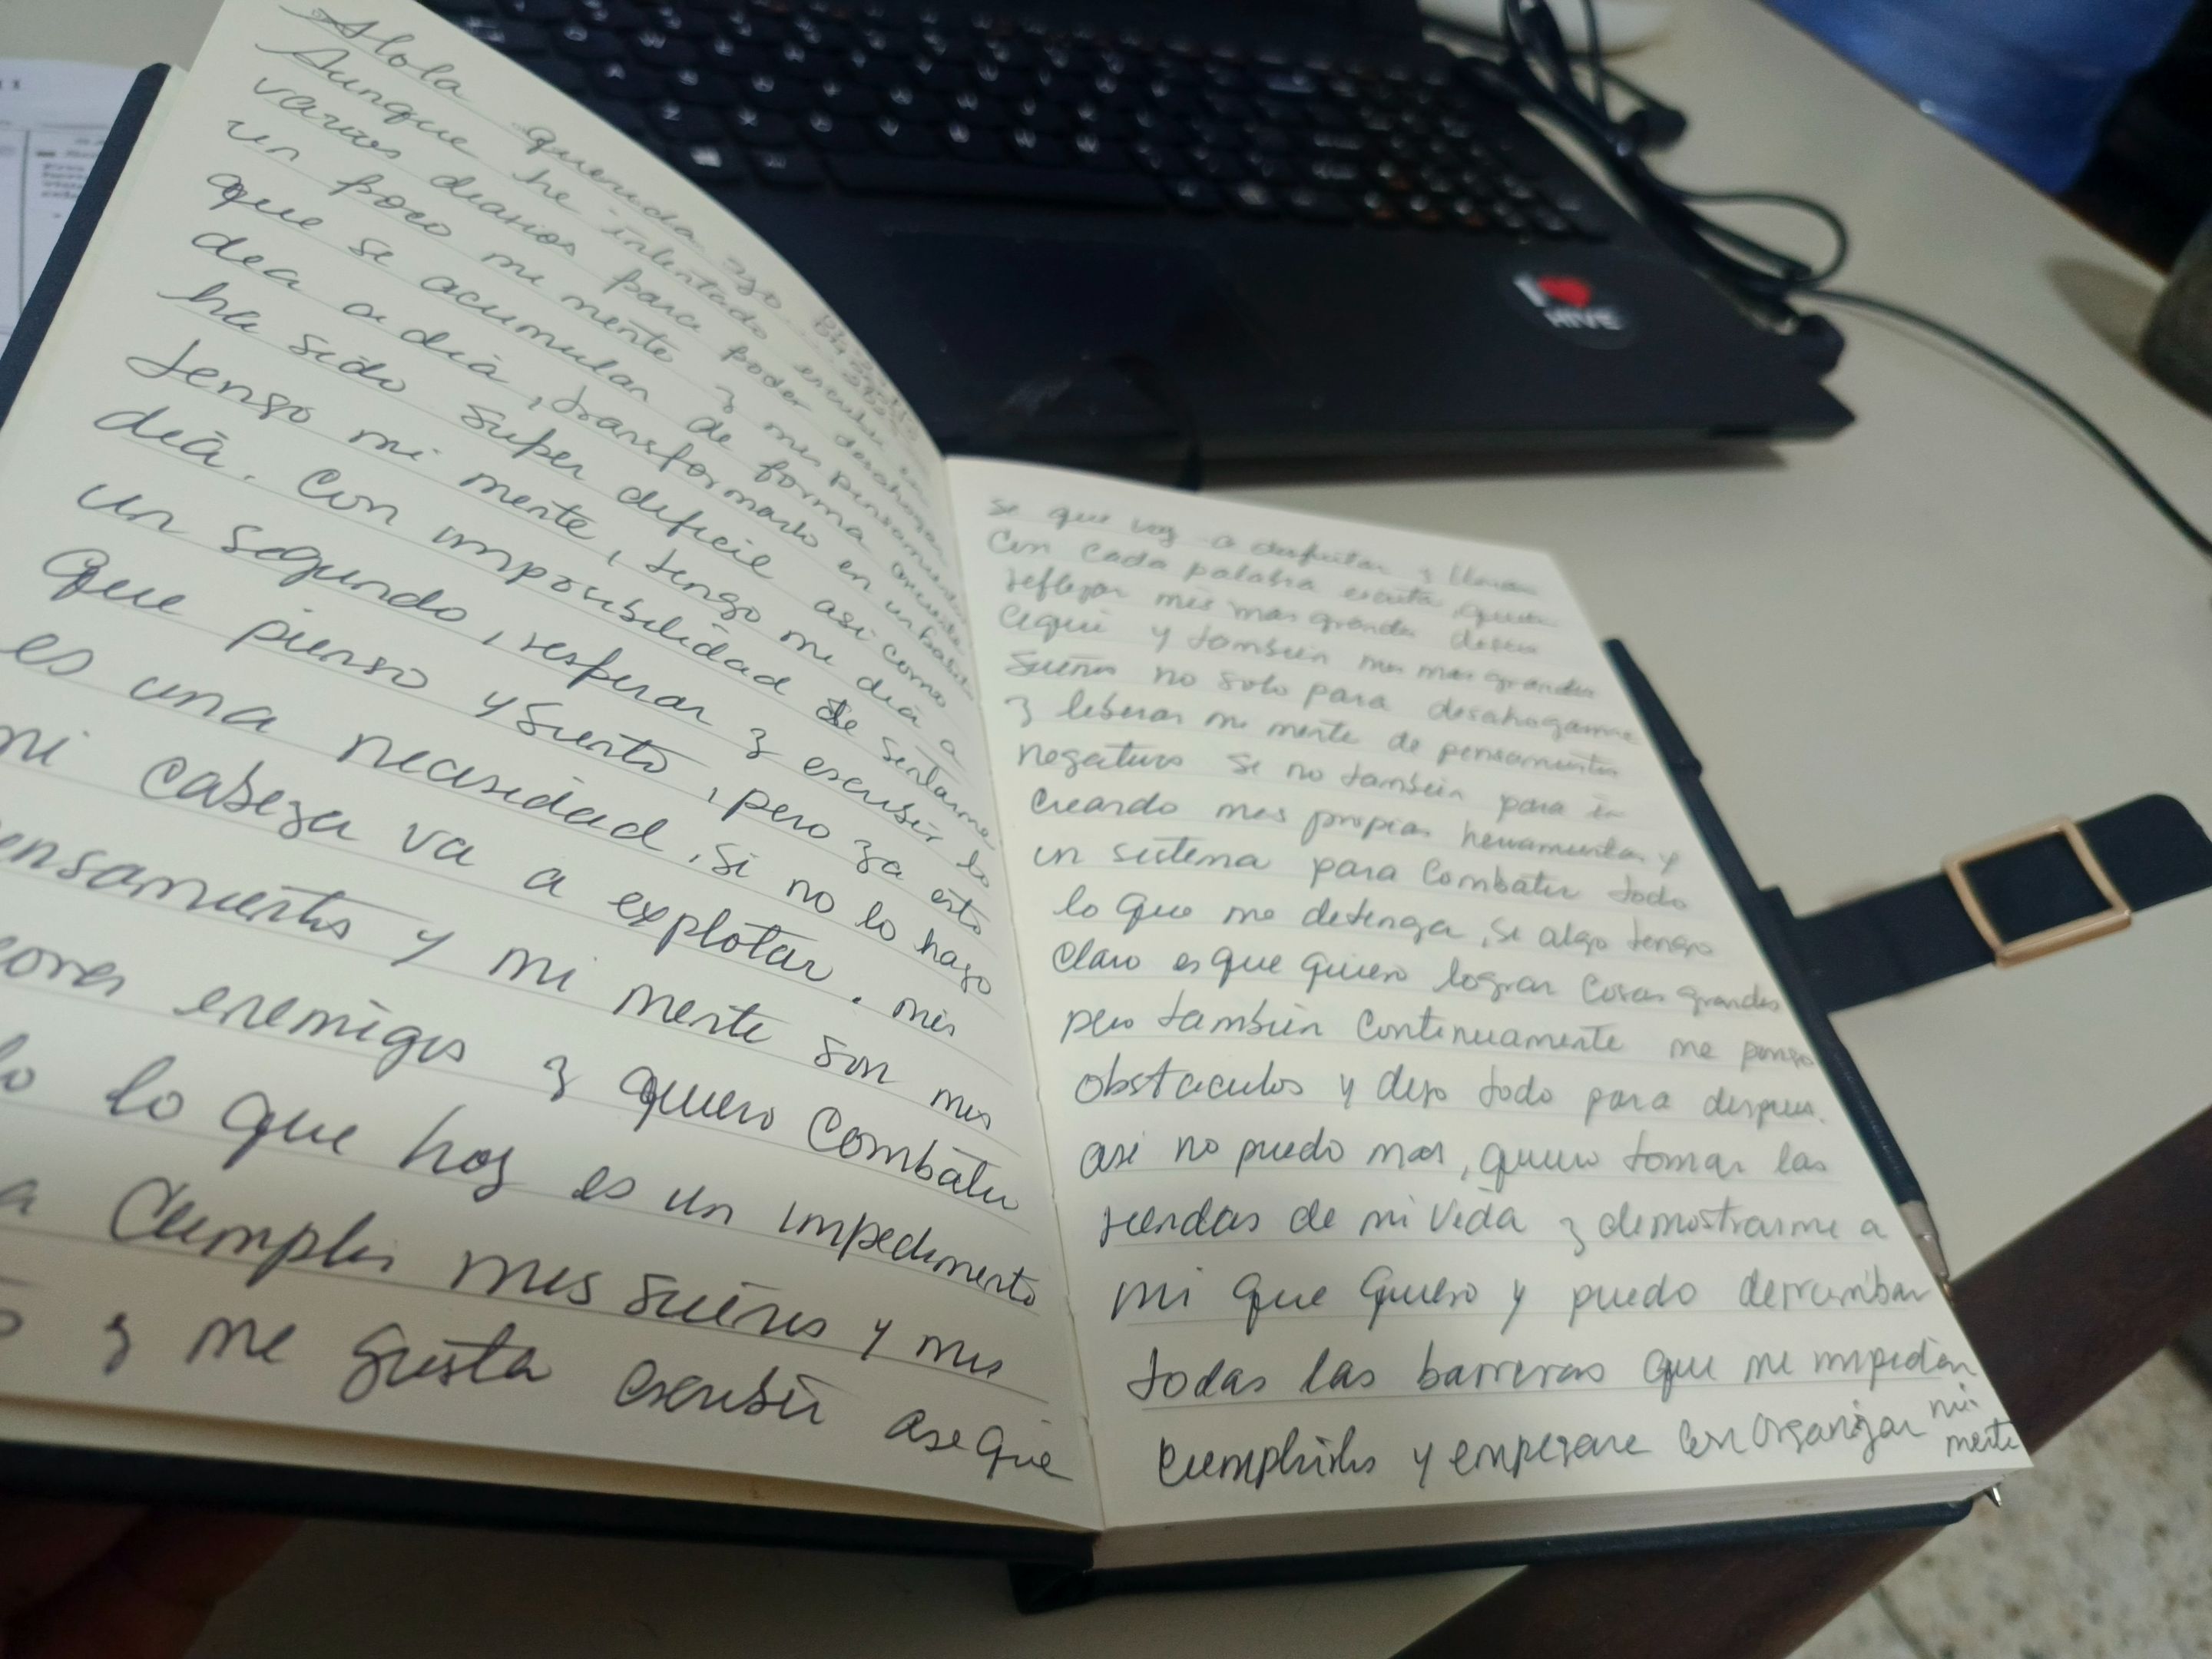 Hola querida yo
Aunque he intentado escribir en
varios diarios para poder desahogar
un poco mi mente y mis pensamientos
que se acumulan de forma
dea a deà, transformarlo en un habito
ha sido super dificil asi como
tengo mi mente, tengo mi dia a
deà. Con imposibilidad de sentarme
un segundo, respirar y escribir lo
que pienso y siento, pero ya esto
es una necesidad, si no lo hago
mi cabeza va a explotar. mis
ensamientos y mi mente son mis
eores enemigos y quiero combatir
lo que hoy es un impedimento
a Cumplir mis sueños y mis
y me gusta escribir asi que
se que voy a disfrutar y llorar
con cada palabra escrita, quiero
reflejar mis mas grandes deseos
aqui y tambien mis mas grandes
sueños no solo para desahogarme
y liberar mi mente de pensamientos
negativos si no tambien para ir
creando mis propias herramientas y
un sistema para combatir todo
lo que me detenga, si algo tengo
claro es que quiero lograr cosas grandes
pero tambien continuamente me pongo
obstaculos y dejo todo para despues.
asi no puedo mas, quiero tomar las
riendas de mi vida y demostrarme a
mi que quiero y puedo derrumbar
todas las barreras que me impiden
cumplirlos y empezare con organizar mi
mente
I
HIVE